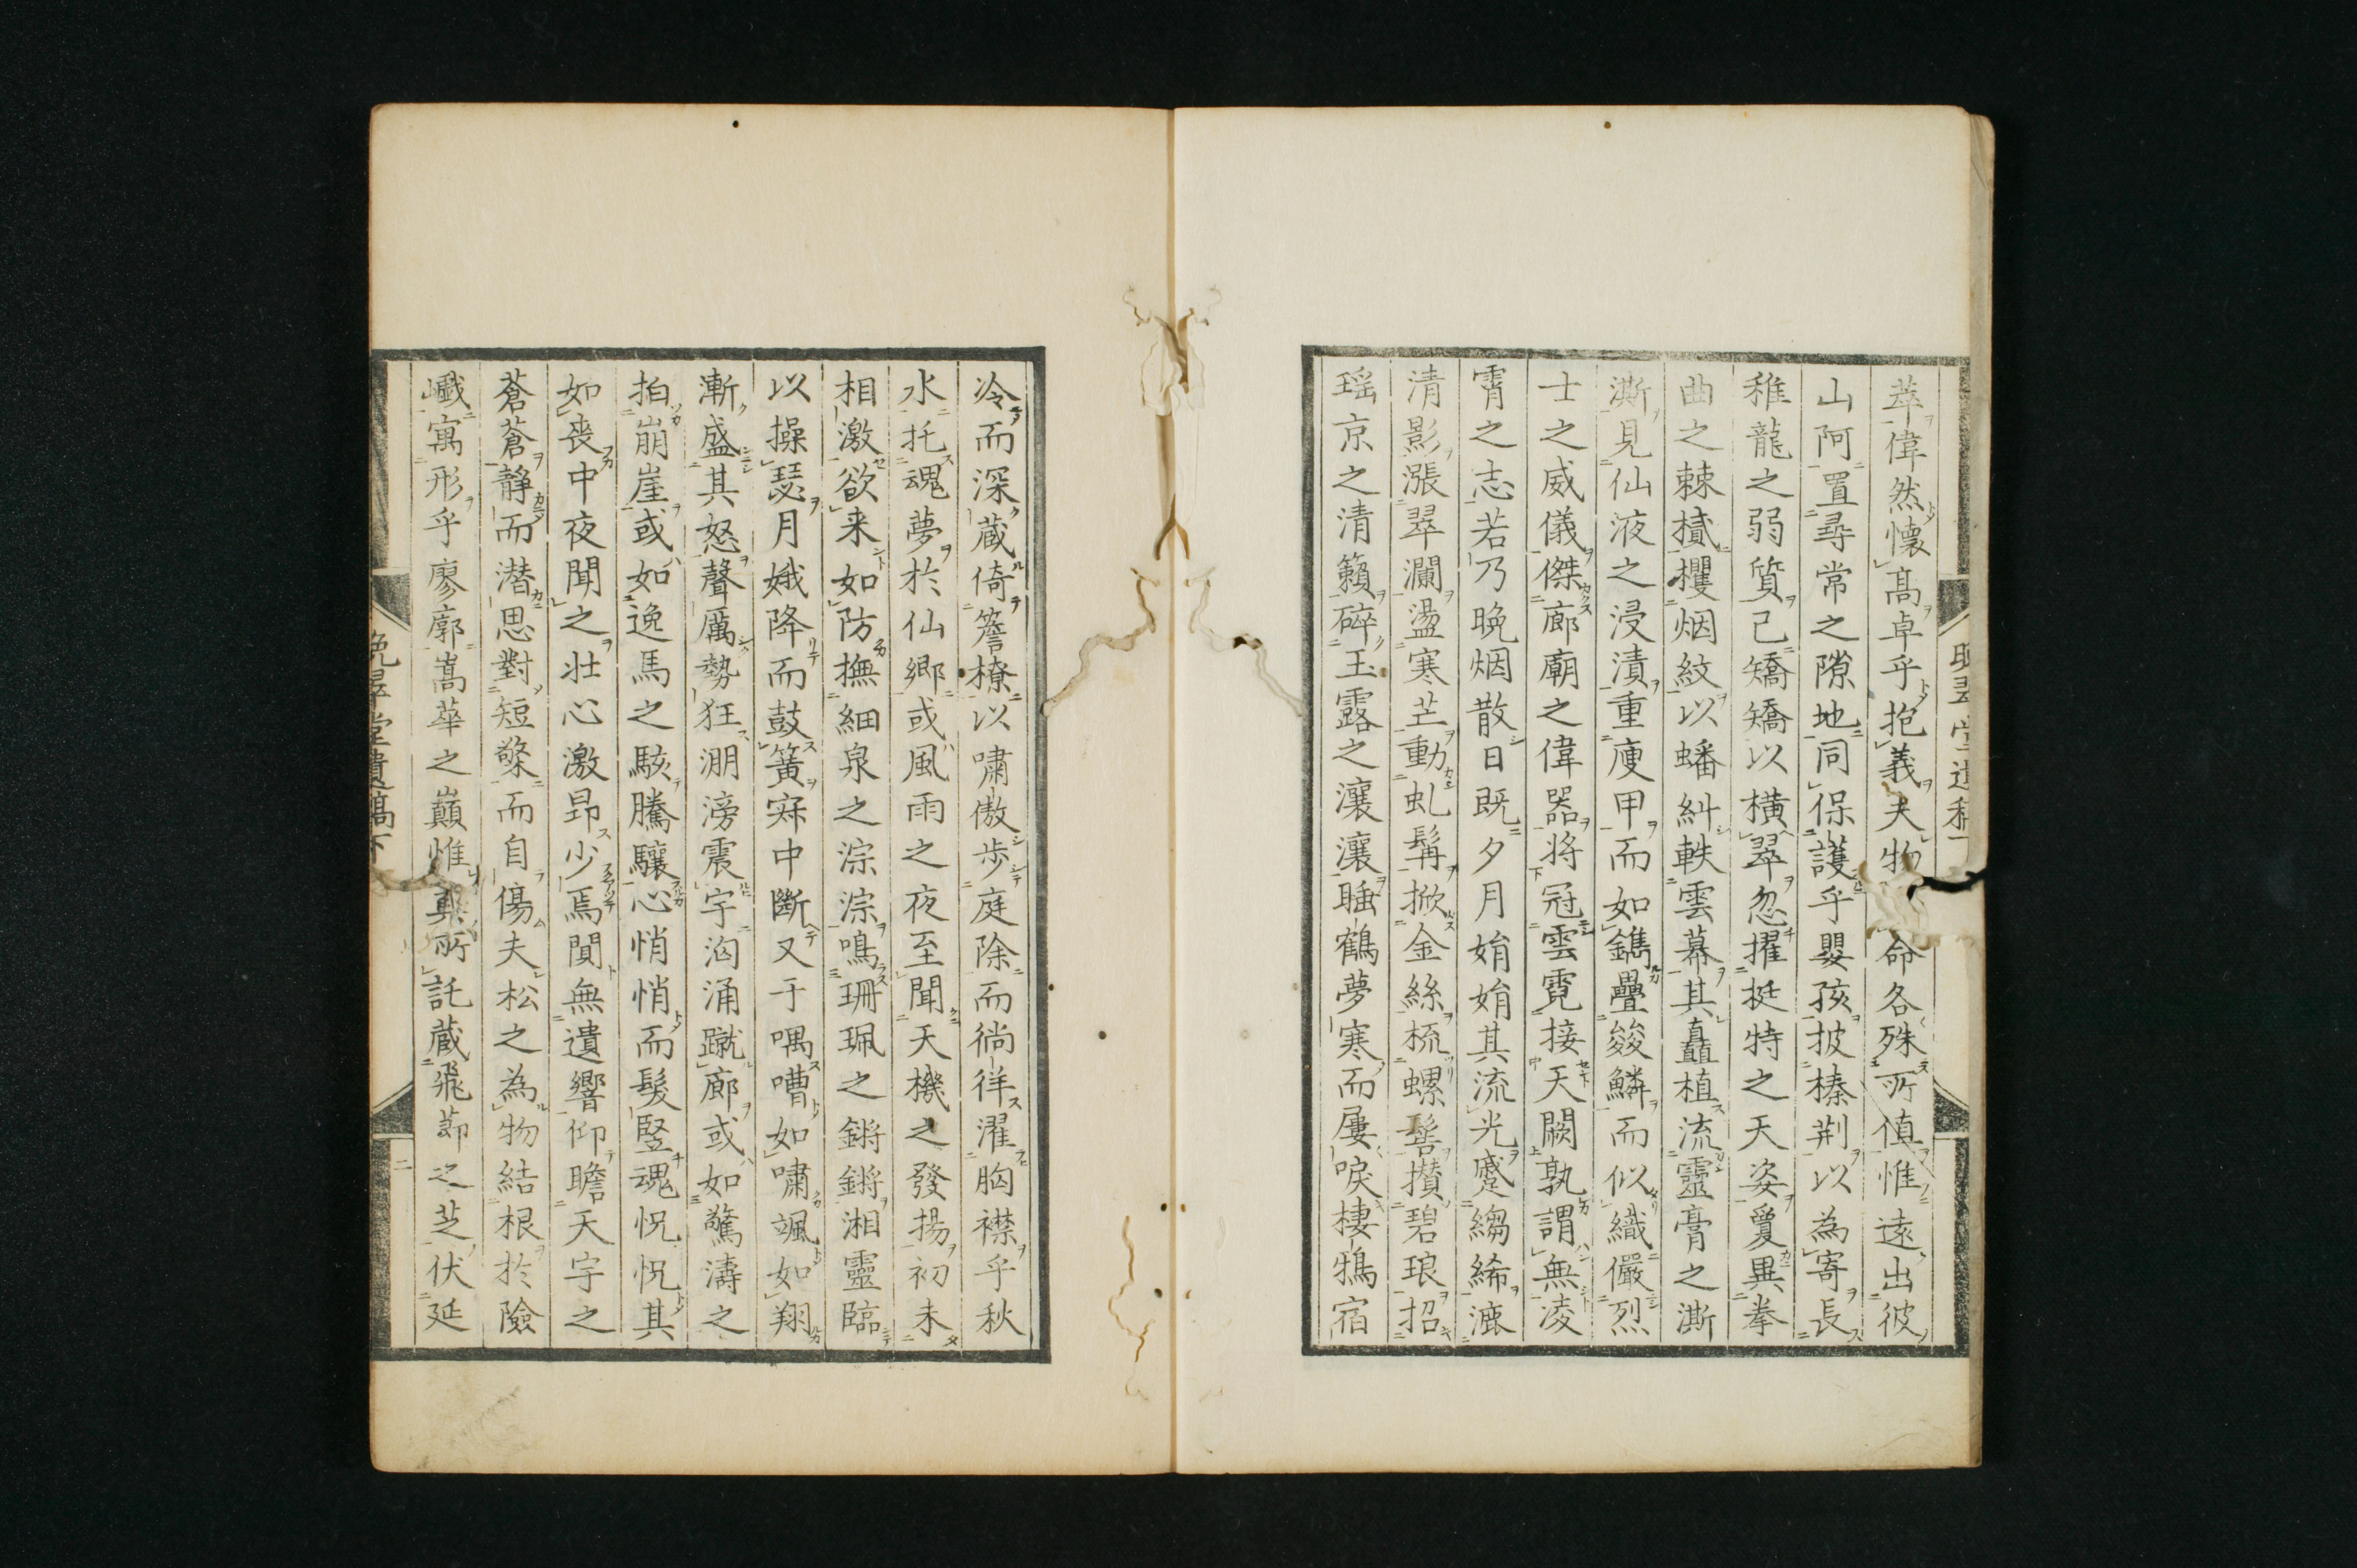 萃偉然懐高卓乎抱義夫物命各殊所値惟遠出彼
山阿置尋常之隙地同保護乎嬰孩披榛荆以為寄長
稚龍之弱質已矯矯以横翠忽擢挺特之天姿夐異拳
曲之棘櫕攫烟紋以蟠糾軼雲幕其矗植流靈膏之澌
澌見仙液之浸漬重痩甲而如鐫疊皴鱗而似織儼烈
士之威儀傑廊廟之偉器将冠雲霓接天闕孰謂無凌
霄之志若乃晩烟散日既夕月娟娟其流光蹙縐絺漉
清影漲翠瀾盪寒芒動虬髯掀金絲梳螺髻攅碧琅招
瑶京之清籟碎玉露之瀼瀼睡鶴夢寒而屡唳棲鴉宿
冷而深蔵倚簷橑以嘯傲歩庭除而徜徉濯胸襟乎秋
水托魂夢於仙郷或風雨之夜至聞天機之發揚初未
相激欲来如防撫細泉之淙淙鳴珊珮之鏘鏘湘靈臨
以操瑟月娥降而鼓簧寂中斷又于喁嘈如嘯颯如翔
漸盛其怒聲厲勢狂淜滂震宇洶涌蹴廊或如驚濤之
拍崩崖或如逸馬之駭騰驤心悄悄而髪竪魂怳怳其
如喪中夜聞之壮心激昂少焉闃無遺響仰瞻天宇之
蒼蒼静而潜思對短檠而自傷夫松之為物結根於險
巇寓形乎廖廓嵩華之巔惟真所託蔵飛節之芝伏延
晩翠堂遺稿下
二